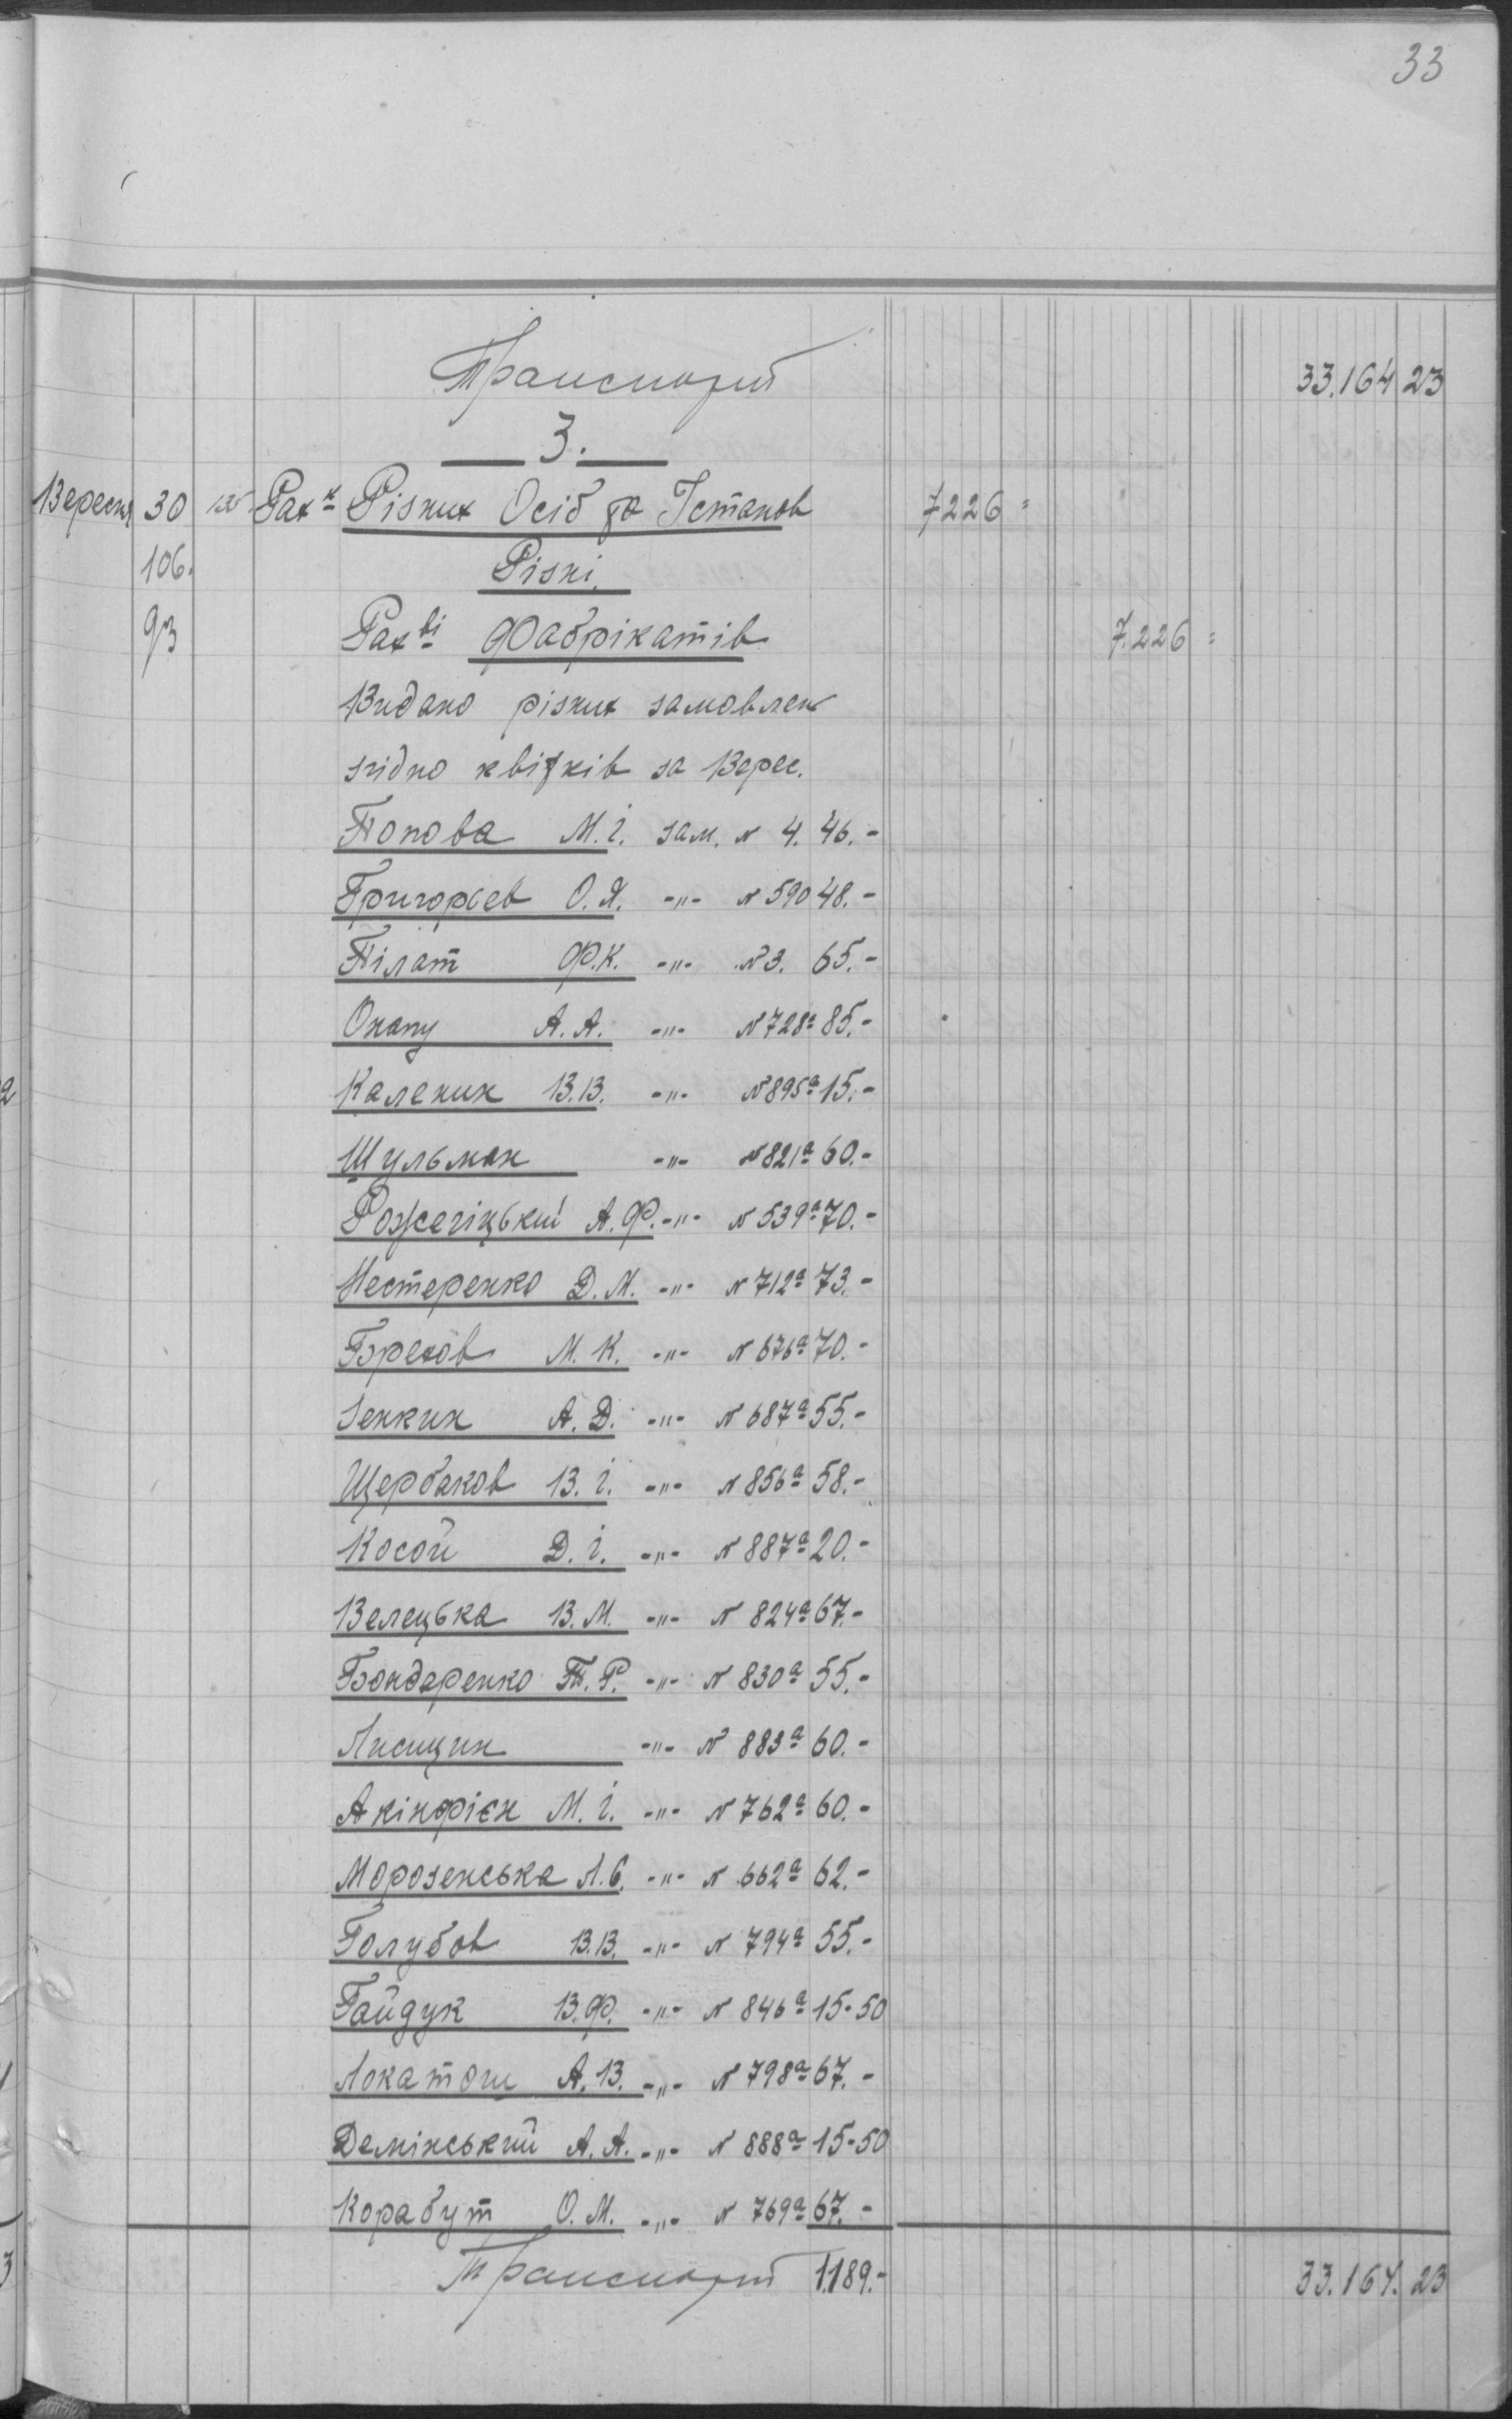 33
Транспорт 33.164 23
3.
Вересня 30 Рах-к Різних Осіб та Істанов 7226 =
106. Різні.
93 Рах-ві Фабрікатів 7.226 =
Видано різних замовлен
згідно квітків за Верес.
Попова М.І. зам. N 4. 46.-
Григорєв О.Я. -"- N 590 48.-
Пілат Ф.К. -"- N 3. 65.-
Онапу А.А. -"- N 728а 85.-
Каленик В.В. -"- N 895а 15.-
Шульман -"- N 821а 60.-
Рожегіцький А.Ф. -"- N 539а 70.-
Нестеренко Д.М. -"- N 712а 73.-
М.К. -"- N 676а 70.-
Зенкин А.Д. -"- N 687а 55.-
Щербаков В.І. -"- N 856а 58.-
Косой Д.І. -"- N 887а 20.-
Велецька В.М. -"- N 824а 67.-
Бондаренко П.Р. -"- N 830а 55.-
Лисицин -"- N 883а 60.-
Акінфієн М.І. -"- N 762а 60.-
Морозенська Л.С. -"- N 662а 62.-
Голубов В.В. -"- N 794а 55.-
Гайдук В.Ф. -"- N 846а 15-50
Локатош А.В. -"- N 798а 67.-
Демінський А.А. -"- N 888а 15-50
Корабут О.М. -"- N 769а 67.-
Транспорт 1189.- 33.164. 23